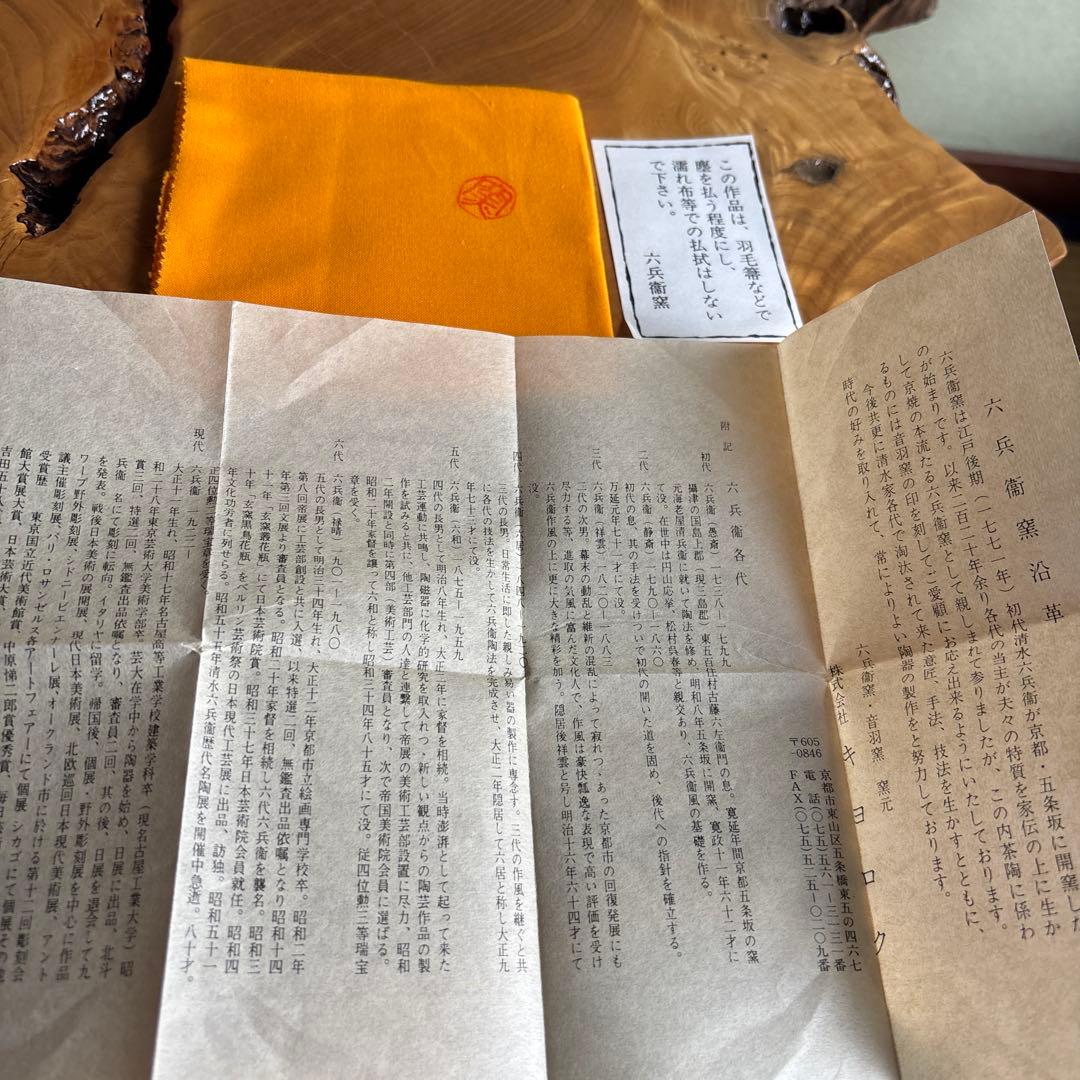 この作品は、羽毛箒などで
塵を払う程度にし、
濡れ布等での払拭はしない
で下さい。
六兵衞窯
六兵衞窯沿革
六兵衞窯は江戸後期(一七七一年)初代清水六兵衞が京都・五条坂に開窯した
のが始まりです。以来二百二十年余り各代の当主が夫々の特質を家伝の上に生か
して京焼の本流たる六兵衞窯として親しまれて参りましたが、この内茶陶に係わ
るものには音羽窯の印を刻してご愛顧にお応え出来るようにいたしております。
今後共更に清水家各代で淘汰されて来た意匠、手法、技法を生かすとともに、
時代の好みを取り入れて、常によりよい陶器の製作をと努力しております。
六兵衞窯・音羽窯 窯元
株式会社 キヨロク
〒605-0846 京都市東山区五条橋東五の四六七
電話〇七五(五六一)三一二一番
FAX〇七五(五二五)〇一〇九番
附記
六兵衞各代
初代 六兵衞(愚斎)一七三八―一七九九
攝津の国島上郡(現三島郡)東五百住村古藤六左衞門の息。寛延年間京都五条坂の窯
元海老屋清兵衞に就いて陶法を修め、明和八年五条坂に開窯、寛政十一年六十二才に
て没。在世中は円山応挙、松村呉春等と親交あり、六兵衞風の基礎を作る。
二代 六兵衞(静斎)一七九〇―一八六〇
初代の息、其の手法を受けついで初代の開いた道を固め、後代への指針を確立する。
万延元年七十一才にて没。
三代 六兵衞(祥雲)一八二〇―一八八三
二代の次男。幕末の動乱と維新の混乱によって寂れつゝあった京都市の回復発展にも
尽力する等、進取の気風に富んだ文化人で、作風は豪快瓢逸な表現で高い評価を受け
六兵衞作風の上に更に大きな精彩を加う。隠居後祥雲と号し明治十六年六十四才にて
没。
四代 六兵衞(祥齢)一八四八―一九二〇
三代の長男。日常生活に即した親しみ易い器の製作に専念す。三代の作風を継ぐと共
に各代の技法を生かして六兵衞陶法を完成させ、大正二年隠居して六居と称し大正九
年七十三才にて没。
五代 六兵衞(六和)一八七五―一九五九
四代の長男として明治八年生れ、大正二年に家督を相続。当時澎湃として起って来た
工芸運動に共鳴し、陶磁器に化学的研究を取入れつゝ新しい観点からの陶芸作品の製
作を試みると共に、他工芸部門の人達と連繋して帝展の美術工芸部設置に尽力、昭和
二年開設と同時に第四部(美術工芸)審査員となり、次で帝国美術院会員に選ばる。
昭和二十年家督を譲って六和と称し昭和三十四年八十五才にて没。従四位勳三等瑞宝
章を受く。
六代 六兵衞(禄晴)一九〇一―一九八〇
五代の長男として明治三十四年生れ、大正十二年京都市立絵画専門学校卒。昭和二年
第八回帝展に工芸部創設と共に入選、以来特選二回、無鑑査出品依嘱となり昭和十四
年第三回文展より審査員となる。昭和二十年家督を相続し六代六兵衞を襲名。昭和三
十年「玄窯叢花瓶」にて日本芸術院賞。昭和三十七年日本芸術院会員就任。昭和四
十年「玄窯黒鳥花瓶」をベルリン芸術祭の日本現代工芸展に出品、訪独。昭和五十一
年文化功労者に列せらる。昭和五十五年清水六兵衞歴代名陶展を開催中急逝。八十才。
正四位勳二等瑞宝章を受く。
現代 六兵衞 一九二二―
大正十一年生れ、昭和十七年名古屋高等工業学校建築学科卒(現名古屋工業大学)昭
和二十八年東京芸術大学美術学部卒。芸大在学中から陶器を始め、日展に出品、北斗
賞三回、特選二回、無鑑査出品依嘱となり、審査員二回、其の後、日展を退会して九
兵衞 名にて彫刻に転向。イタリヤに留学。帰国後、個展・野外彫刻展を中心に作品
を発表。戦後日本美術の展開展、現代日本美術展、北欧巡回日本現代美術展、アント
ワープ野外彫刻展、シドニービエンナーレ展、オークランド市に於ける第十一回彫刻会
議主催彫刻展、パリ、ロサンゼルス各アートフェアーにて個展 シカゴにて個展その他
受賞歴 東京国立近代美術館賞、
館大賞展大賞、日本芸術大賞、中原悌二郎賞優秀賞、
吉田五十八